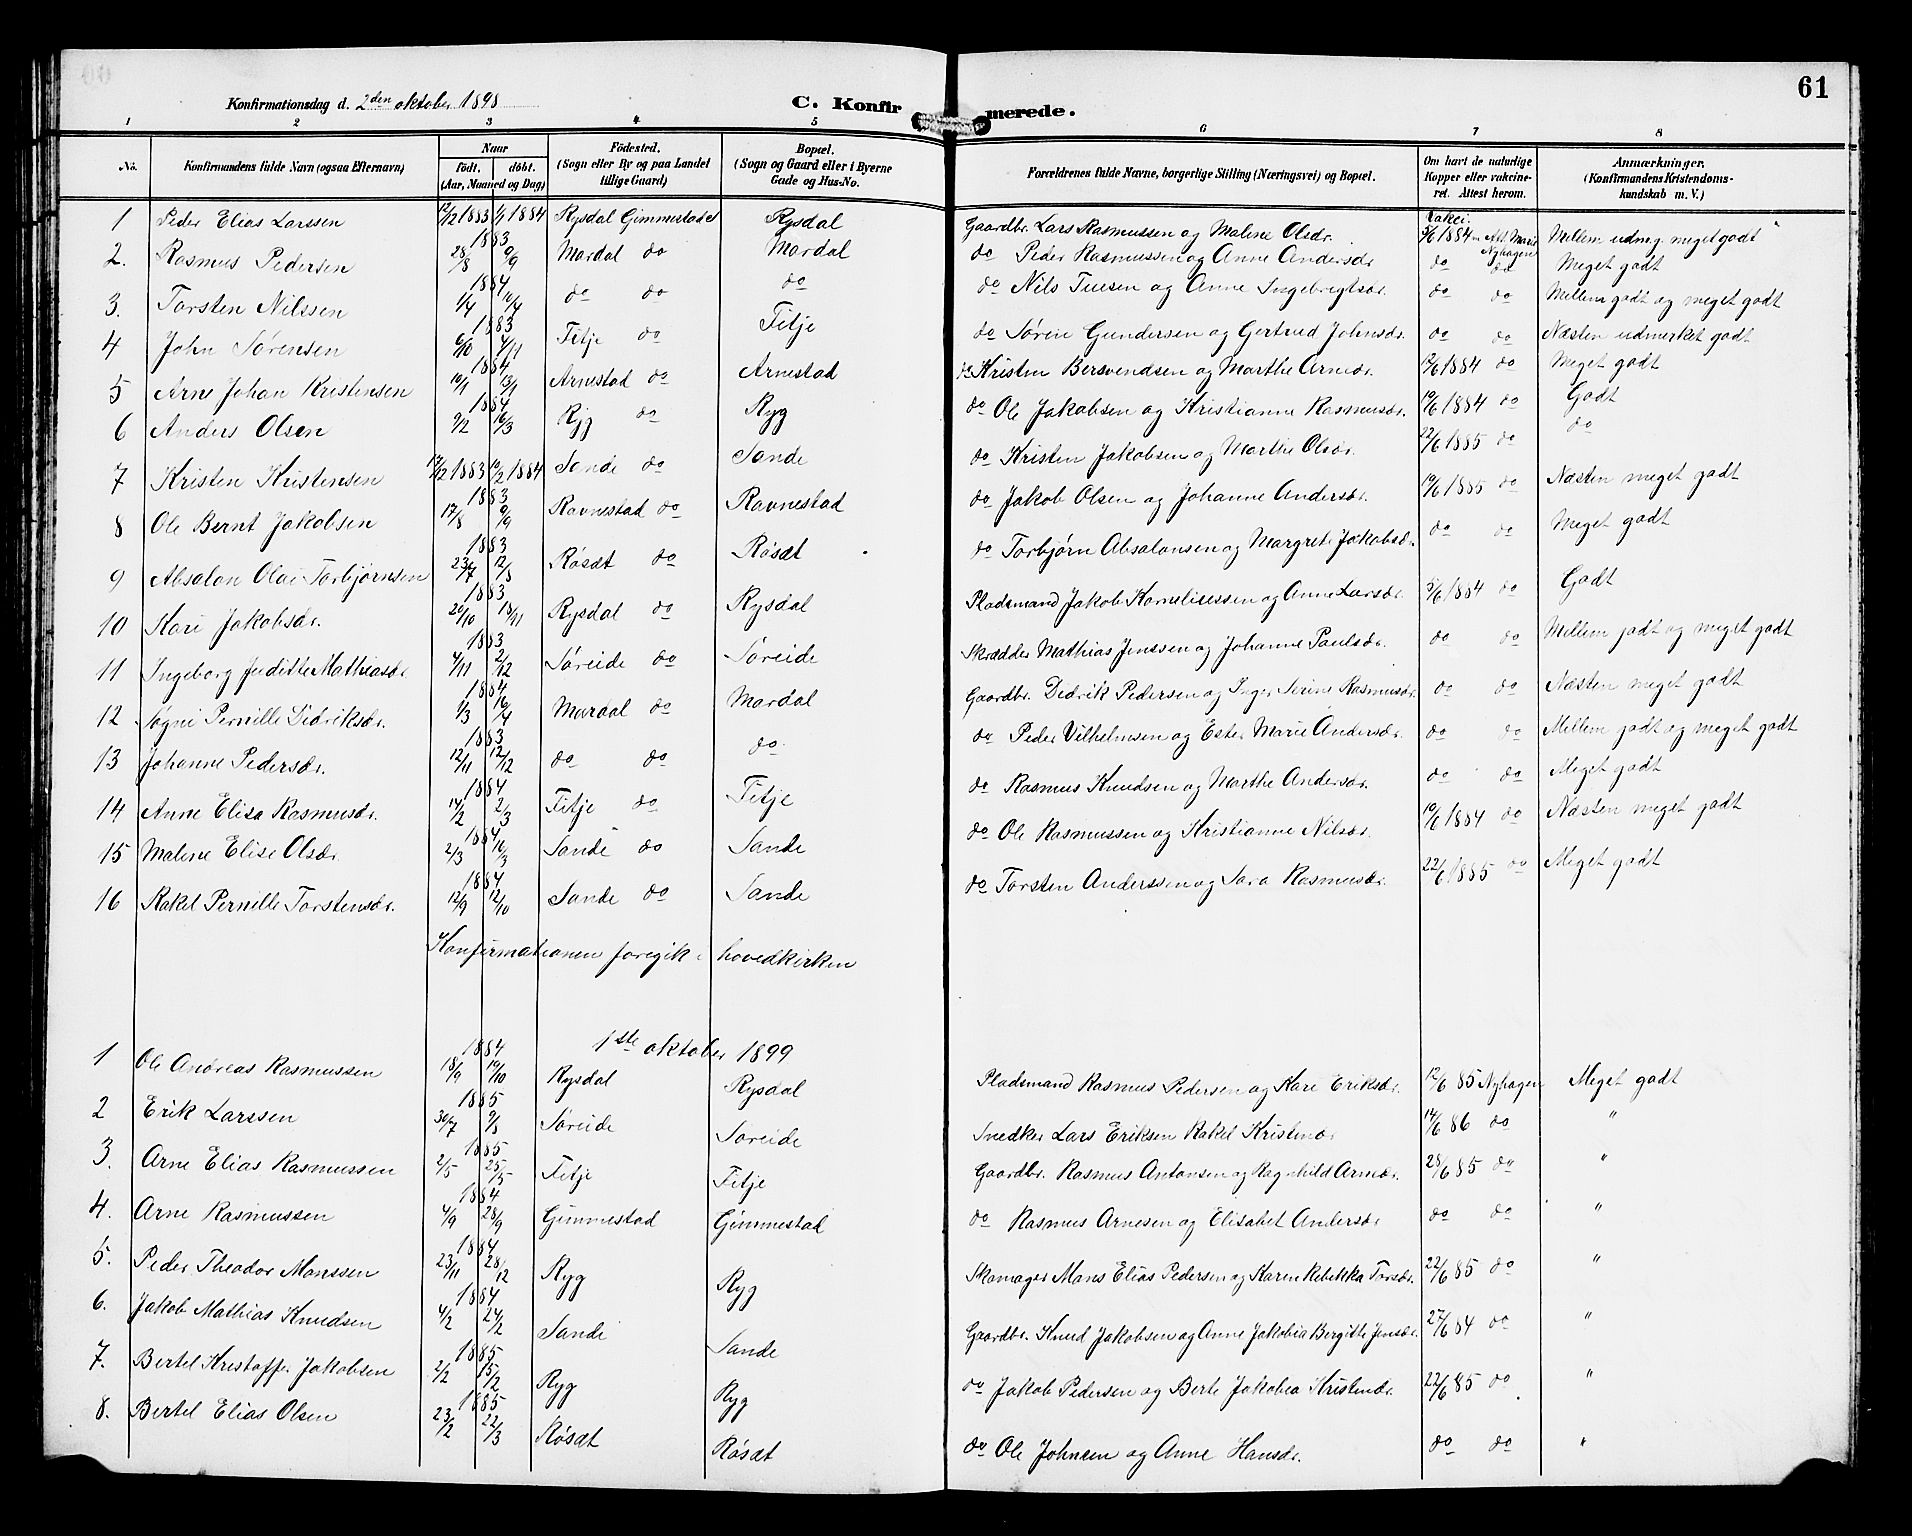 61
Konfirmationsdag d. 2den oktober 1898
C. Konfirmerede.
1 2 3 4 5 6 7 8
No. Konfirmandens fulde Navn (ogsaa Efternavn) Naar født. døbt. (Aar, Maaned og Dag) Fødested. (Sogn eller By og paa Landet tillige Gaard) Bopæl. (Sogn og Gaard eller i Byerne Gade og Hus-No. Forældrenes fulde Navne, borgerlige Stilling (Næringsvei) og Bopæl. Om havt de naturlige Kopper eller vaccineret. Attest herom. Anmærkninger. (Konfirmandens Kristendomskundskab m. V.)
1 Peder Elias Larssen 12/12 1883 1/1 1884 Rysdal Gimmestad Rysdal Gaardbr. Lars Rasmussen og Malene Olsdr. Vakci. 5/6 1884 Att. Marie Nyhagen Mellem udm. g. meget godt
2. Rasmus Pedersen 1883 28/8 9/9 Mardal do Mardal do Peder Rasmussen og Anne Andersdr do do Meget godt
3. Torsten Nilssen 1884 1/4 10/4 do do do do Nils Tuesen og Anne Ingebrigtsdr. do do Mellem godt og meget godt
4 John Sørensen 1883 6/10 4/11 Fitje do Fitje do Søren Gundersen og Gertrud Johnsdr. do do Næsten udmerket godt
5 Arne Johan Kristensen 1884 10/1 13/1 Arnestad do Arnestad do Kristen Bersvendsen og Marthe Arnedr. 12/6 1884 do Meget godt
6 Anders Olsen 1884 9/2 16/3 Ryg do Ryg do Ole Jakobsen og Kristianne Rasmusdr. 19/6 1884 do Godt
7 Kristen Kristensen 19/12 1883 10/2 1884 Sande do Sande do Kristen Jakobsen og Marthe Olsdr. 22/6 1885 do do
8 Ole Bernt Jakobsen 1883 17/8 9/9 Ravnestad do Ravnestad do Jakob Olsen og Johanne Andersdr. 19/6 1885 do Næsten meget godt
9 Absalon Olai Torbjørnsen 1883 23/7 12/8 Røsæt do Røsæt do Torbjørn Absalonsen og Margrete Jakobsdr. do do Meget godt
10 Kari Jakobsdr. 1883 20/10 18/11 Rysdal do Rysdal Pladsmand Jakob Korneliussen og Anne Larsdr. 5/6 1884 do Godt
11 Ingeborg Juditte Mathiasdr. 1883 4/11 2/12 Søreide do Søreide Skrædder Mathias Jenssen og Johanne Paulsdr. do do Mellem godt og meget godt
12 Søgni Pernille Didriksdr. 1884 1/3 16/4 Mardal do Mardal Gaardbr. Didrik Pedersen og Inger Serine Rasmusdr. do do Næsten meget godt
13 Johanne Pedersdr. 1883 12/11 12/12 do do do do Peder Vilhelmsen og Ester Marie Andersdr. do do Mellem godt og meget godt
14 Anne Elisa Rasmusdr. 1884 14/2 2/3 Fitje do Fitje do Rasmus Knudsen og Marthe Andersdr. do do Meget godt
15 Malene Elise Olsdr. 1884 2/3 16/3 Sande do Sande do Ole Rasmussen og Kristianne Nilsdr. 19/6 1884 do Næsten meget godt
16 Rakel Pernille Torstensdr. 1884 12/9 12/10 Sande do Sande do Torsten Anderssen og Sara Rasmusdr. 22/6 1885 do Meget godt
Konfirmationen foregik i hovedkirken
1ste oktober 1899
1 Ole Andreas Rasmussen 1884 18/9 19/10 Rysdal Rysdal Pladsmand Rasmus Pedersen og Kari Eriksdr. 12/6 85 Nyhagen Meget godt
2 Erik Larssen 1885 30/7 9/8 Søreide Søreide Snedker Lars Eriksen Rakel Kristendr 14/6 86 do "
3. Arne Elias Rasmussen 1885 2/5 25/5 Fitje Fitje Gaardbr. Rasmus Antonsen og Ragnhild Arnedr. 28/6 85 do "
4. Arne Rasmussen 1884 4/9 28/9 Gimmestad Gimmestad do Rasmus Arnesen og Elisabet Andersdr do do "
5. Peder Theodor Monssen 1884 23/11 28/12 Ryg Ryg Skomager Mons Elias Pedersen og Karen Rebekka Torsdr. 22/6 85 do "
6. Jakob Mathias Knudsen 1884 4/2 24/2 Sande Sande Gaardbr. Knud Jakobsen og Anne Jakobia Bergitte Jensdr. 27/6 84 do "
7. Bertel Kristoffer Jakobsen 1885 2/2 15/2 Ryg Ryg do Jakob Pedersen og Berte Jakobea Kristendr. 22/6 85 do "
8. Bertel Elias Olsen 1885 23/2 22/3 Røsæt Røsæt do Ole Johnsen og Anne Hansdr. do do "